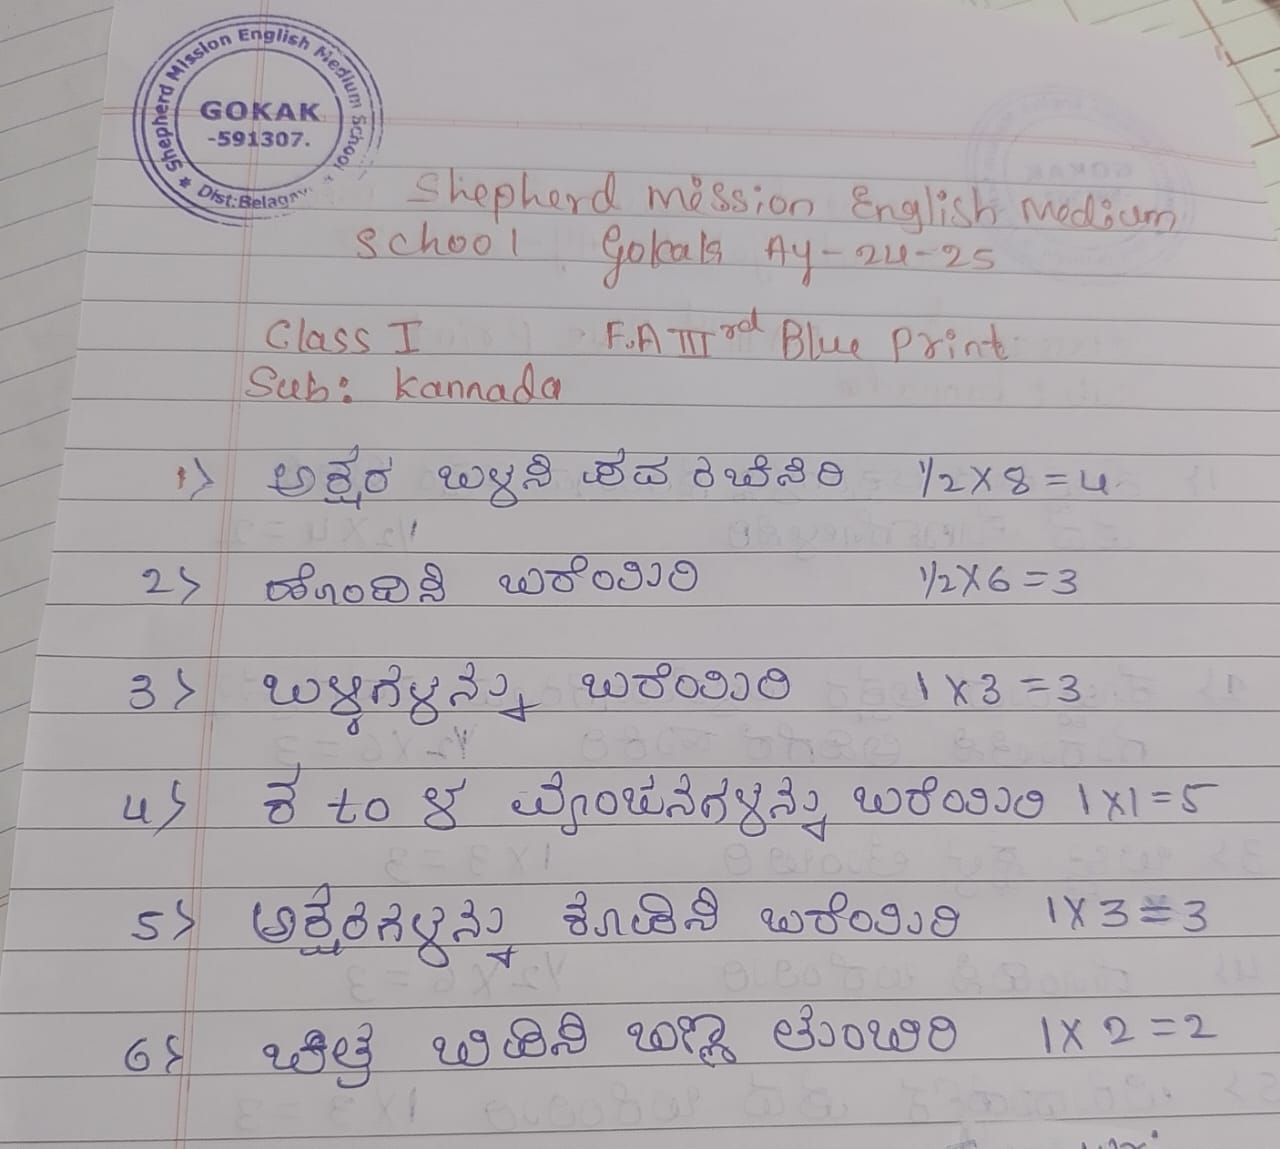 Shepherd Mission English Medium School
GOKAK
-591307.
Dist:Belagavi
Shepherd Mission English Medium
School Gokak AY-24-25
Class I F.A IIIrd Blue Print
Sub: Kannada
1) ಅಕ್ಷರ ಬಳಸಿ ಪದ ರಚಿಸಿರಿ 1/2 X 8 = 4
2) ಹೊಂದಿಸಿ ಬರೆಯಿರಿ 1/2 X 6 = 3
3) ಬಳ್ಳಿಗಳನ್ನು ಬರೆಯಿರಿ 1 X 3 = 3
4) ಕ to ಳ ವ್ಯಂಜನಗಳನ್ನು ಬರೆಯಿರಿ 1 X 1 = 5
5) ಅಕ್ಷರಗಳನ್ನು ಕೂಡಿಸಿ ಬರೆಯಿರಿ 1 X 3 = 3
6) ಚಿತ್ರ ಬಿಡಿಸಿ ಬಣ್ಣ ತುಂಬಿರಿ 1 X 2 = 2